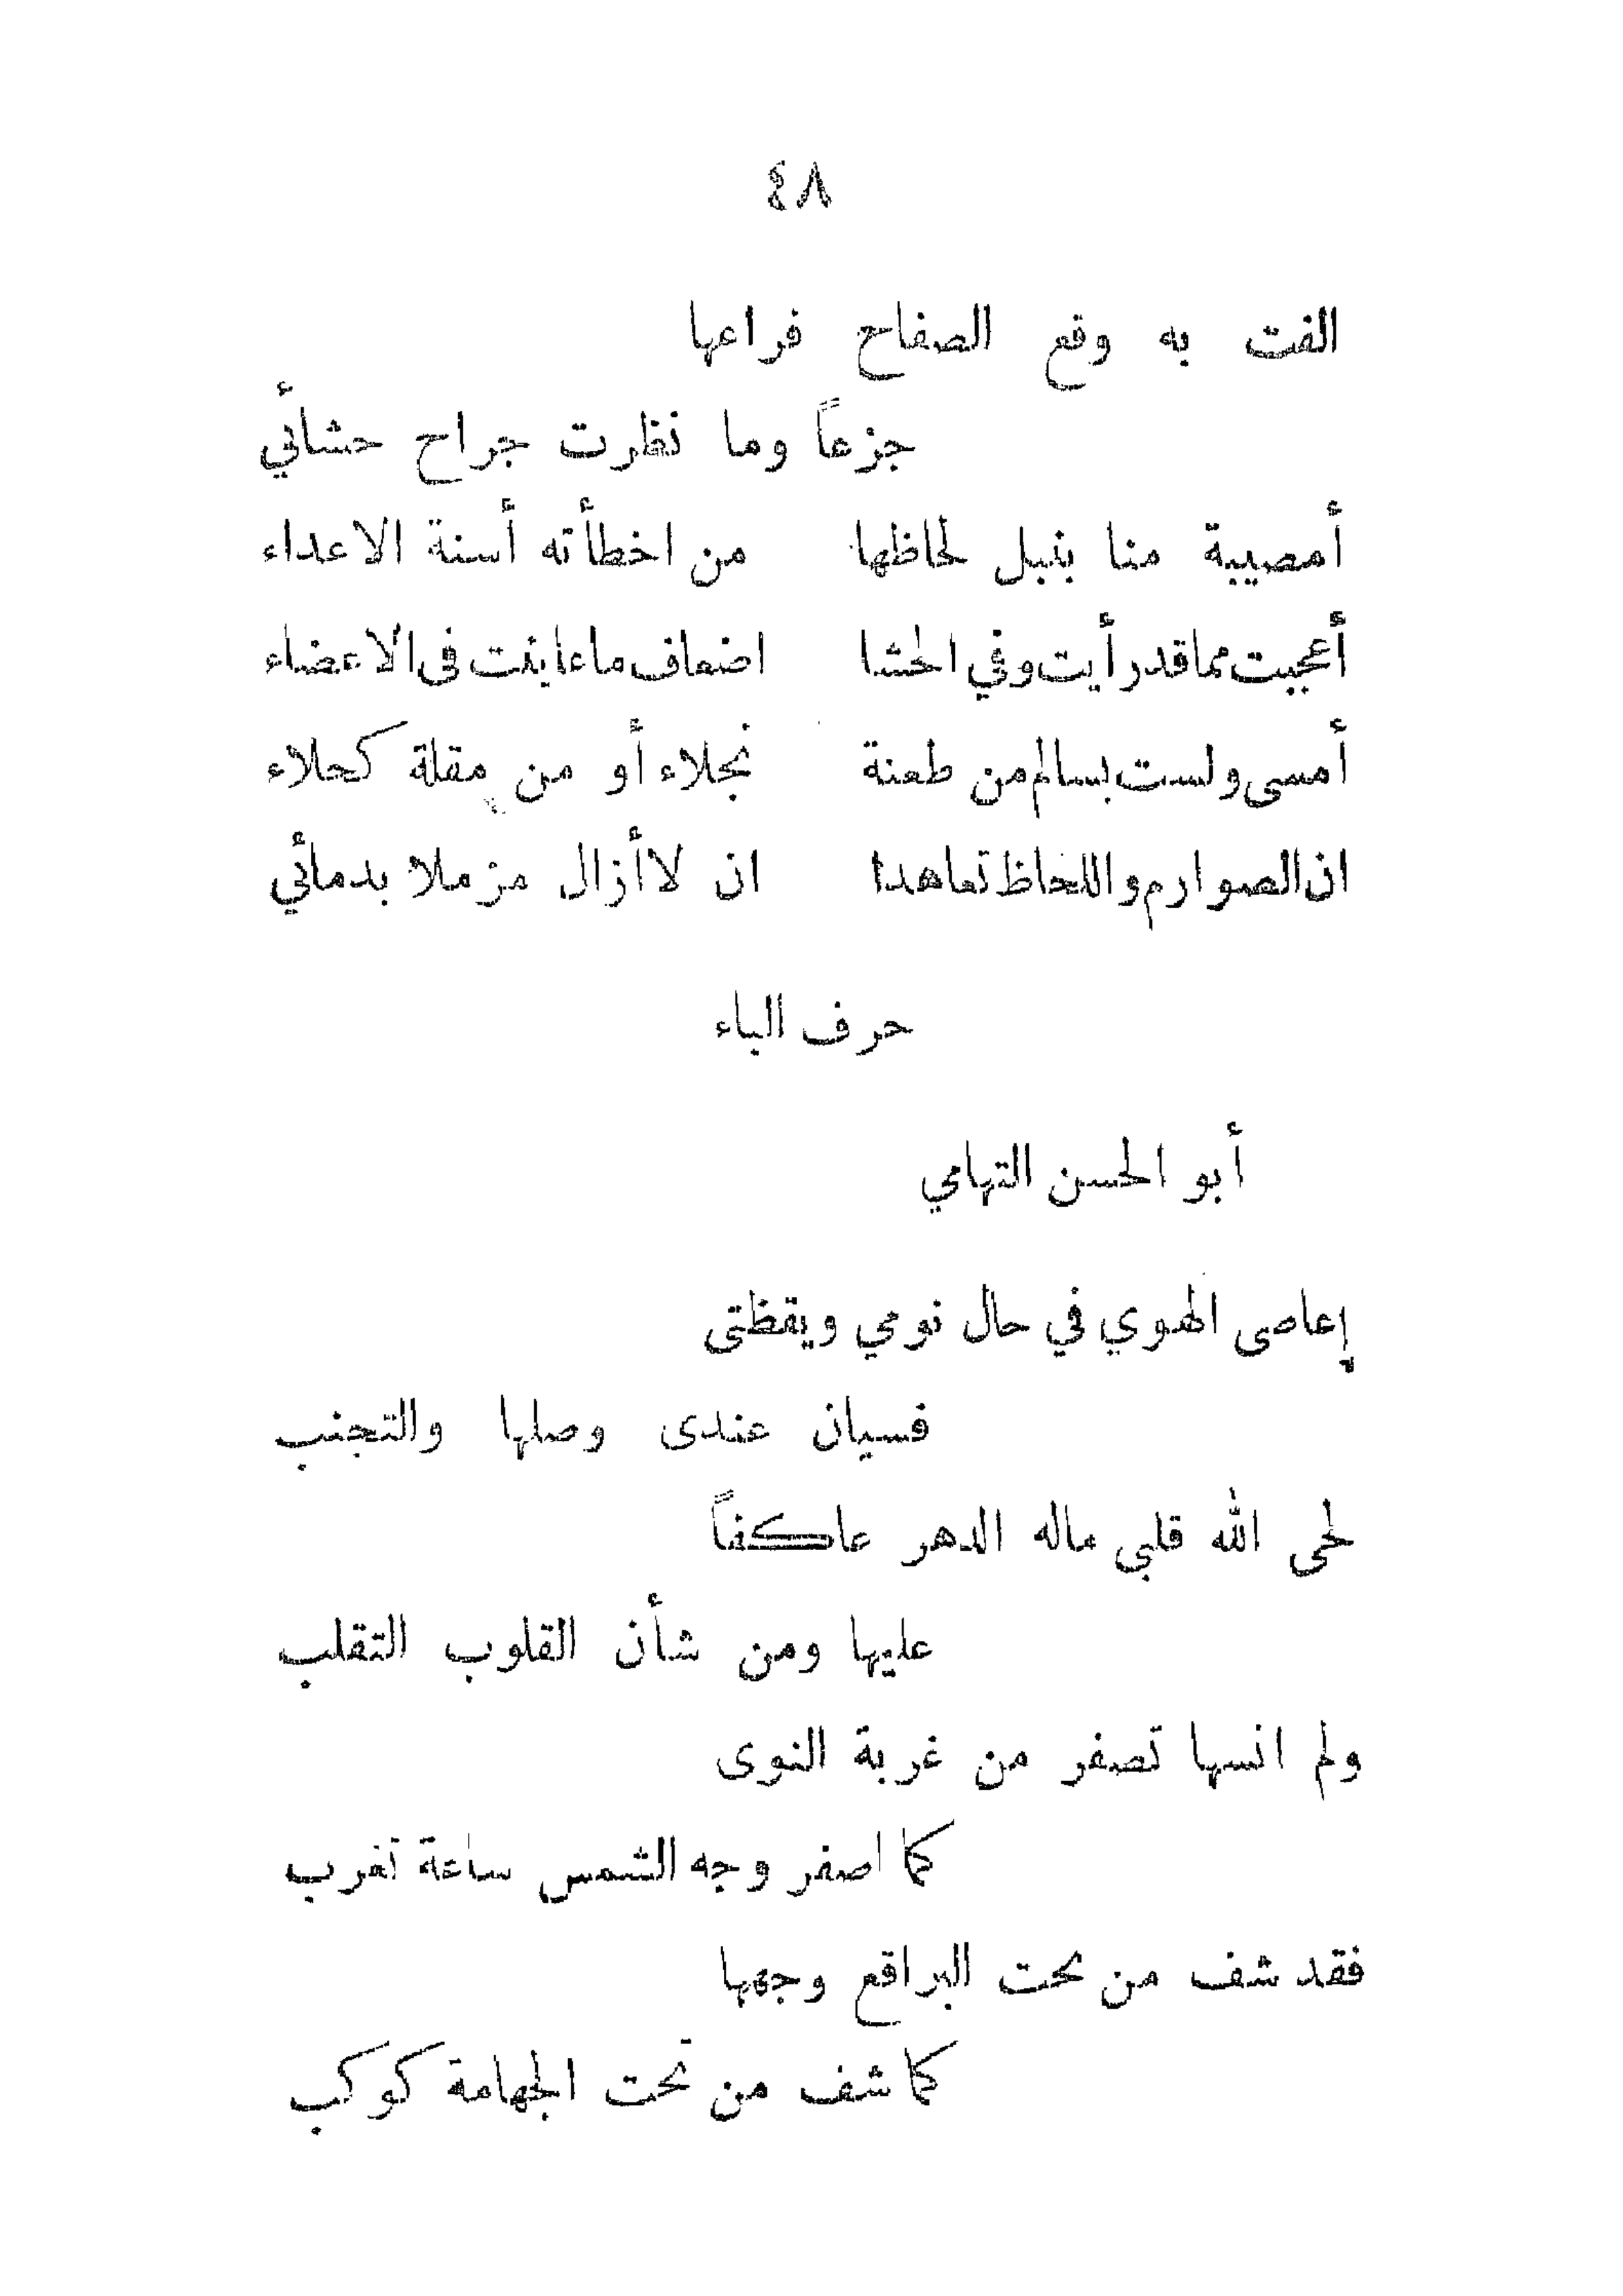 ٤٨
الفت به وقع الصفاح فراعها
جزعاً وما نظرت جراح حشائي
أمصيبة منا بنبل لحاظها من اخطأته أسنة الاعداء
أعجبت مما قد رأيت وفي الحشا اضعاف ما عاينت فى الاعضاء
أمسى ولست بسالم من طعنة نجلاء أو من مقلة كحلاء
ان الصوارم واللحاظ تعاهدا ان لا أزال مزملا بدمائي
حرف الباء
أبو الحسن التهامي
إعاصى الهوي في حال نومي ويقظتى
فسيان عندى وصلها والتجنب
لحى الله قلبي ماله الدهر عاكفاً
عليها ومن شأن القلوب التقلب
ولم انسها تصفر من غربة النوى
كما اصفر وجه الشمس ساعة تغرب
فقد شف من تحت البراقع وجهها
كما شف من تحت الجهامة كوكب